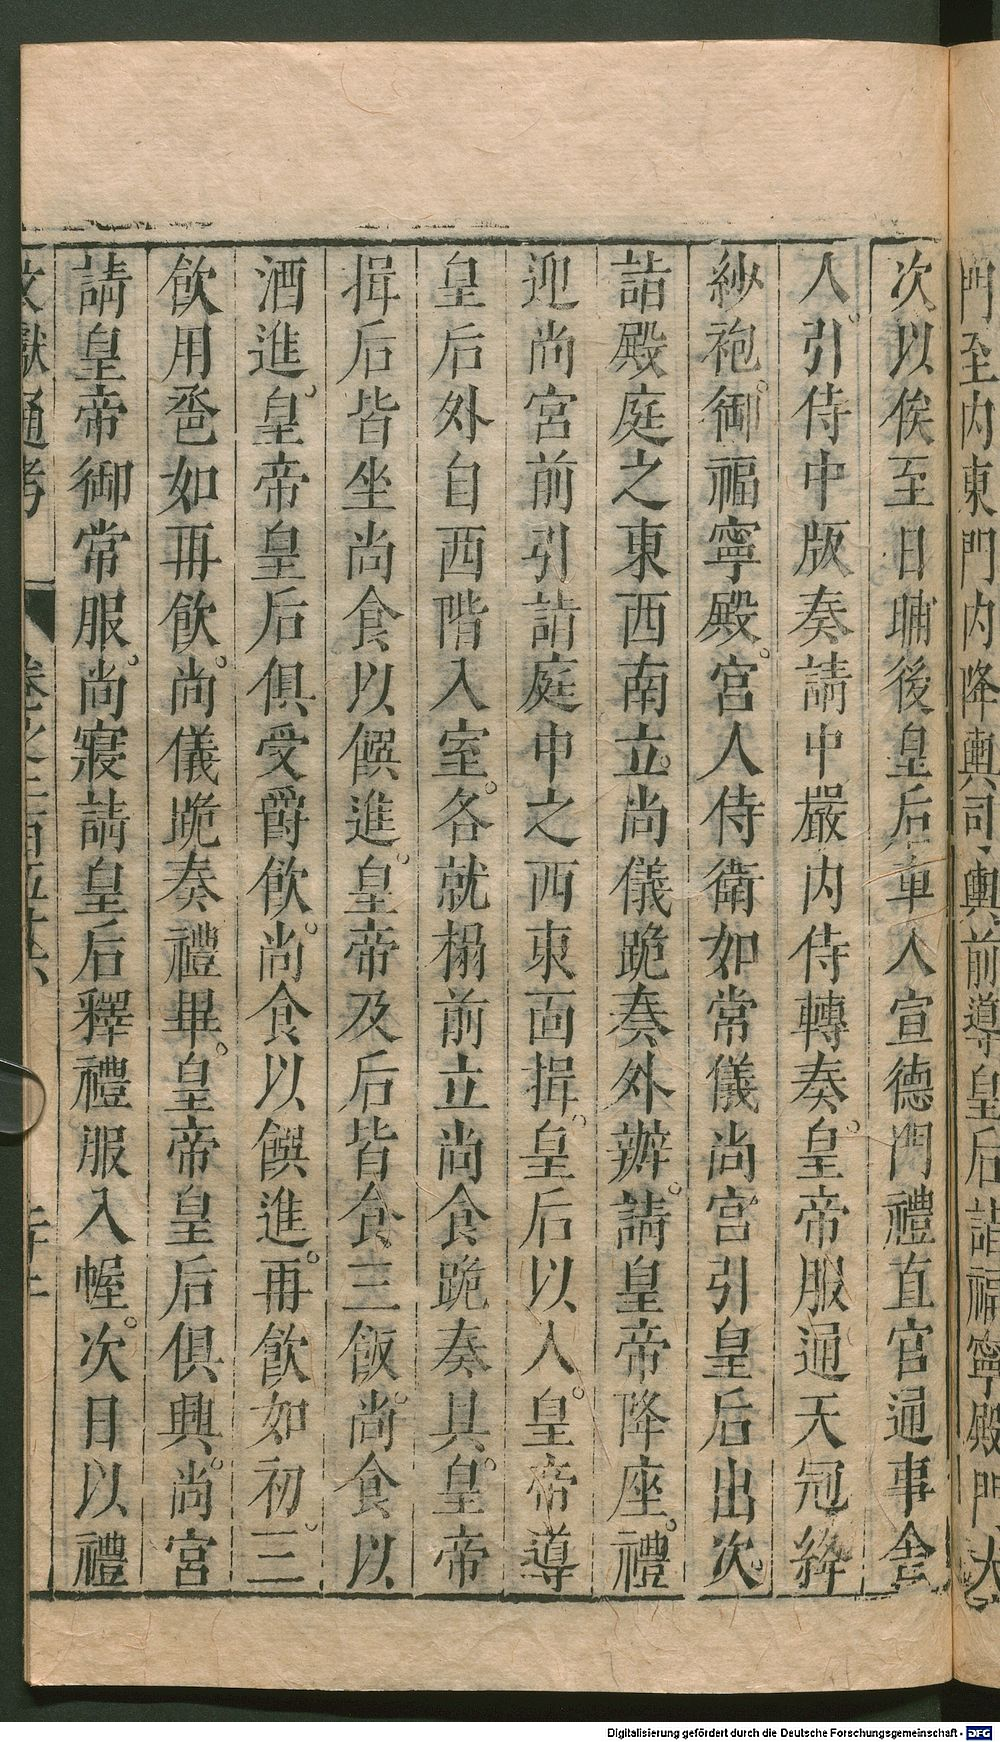 門至內東門內降輿司輿前導皇后詣福寧殿門大
次以俟至日晡後皇后車入宣德門禮直官通事舍
人引侍中版奏請中嚴內侍轉奏皇帝服通天冠絳
紗袍御福寧殿宮人侍衛如常儀尚宮引皇后出次
詣殿庭之東西南立尚儀跪奏外辦請皇帝降座禮
迎尚宮前引詣庭中之西東面揖皇后以入皇帝導
皇后外自西階入室各就榻前立尚食跪奏具皇帝
揖后皆坐尚食以饌進皇帝及后皆食三飯尚食以
酒進皇帝皇后俱受爵飲尚食以饌進再飲如初三
飲用巹如再飲尚儀跪奏禮畢皇帝皇后俱興尚宮
請皇帝御常服尚寢請皇后釋禮服入幄次日以禮
文獻通考 卷之二百五十六
Digitalisierung gefördert durch die Deutsche Forschungsgemeinschaft - DFG